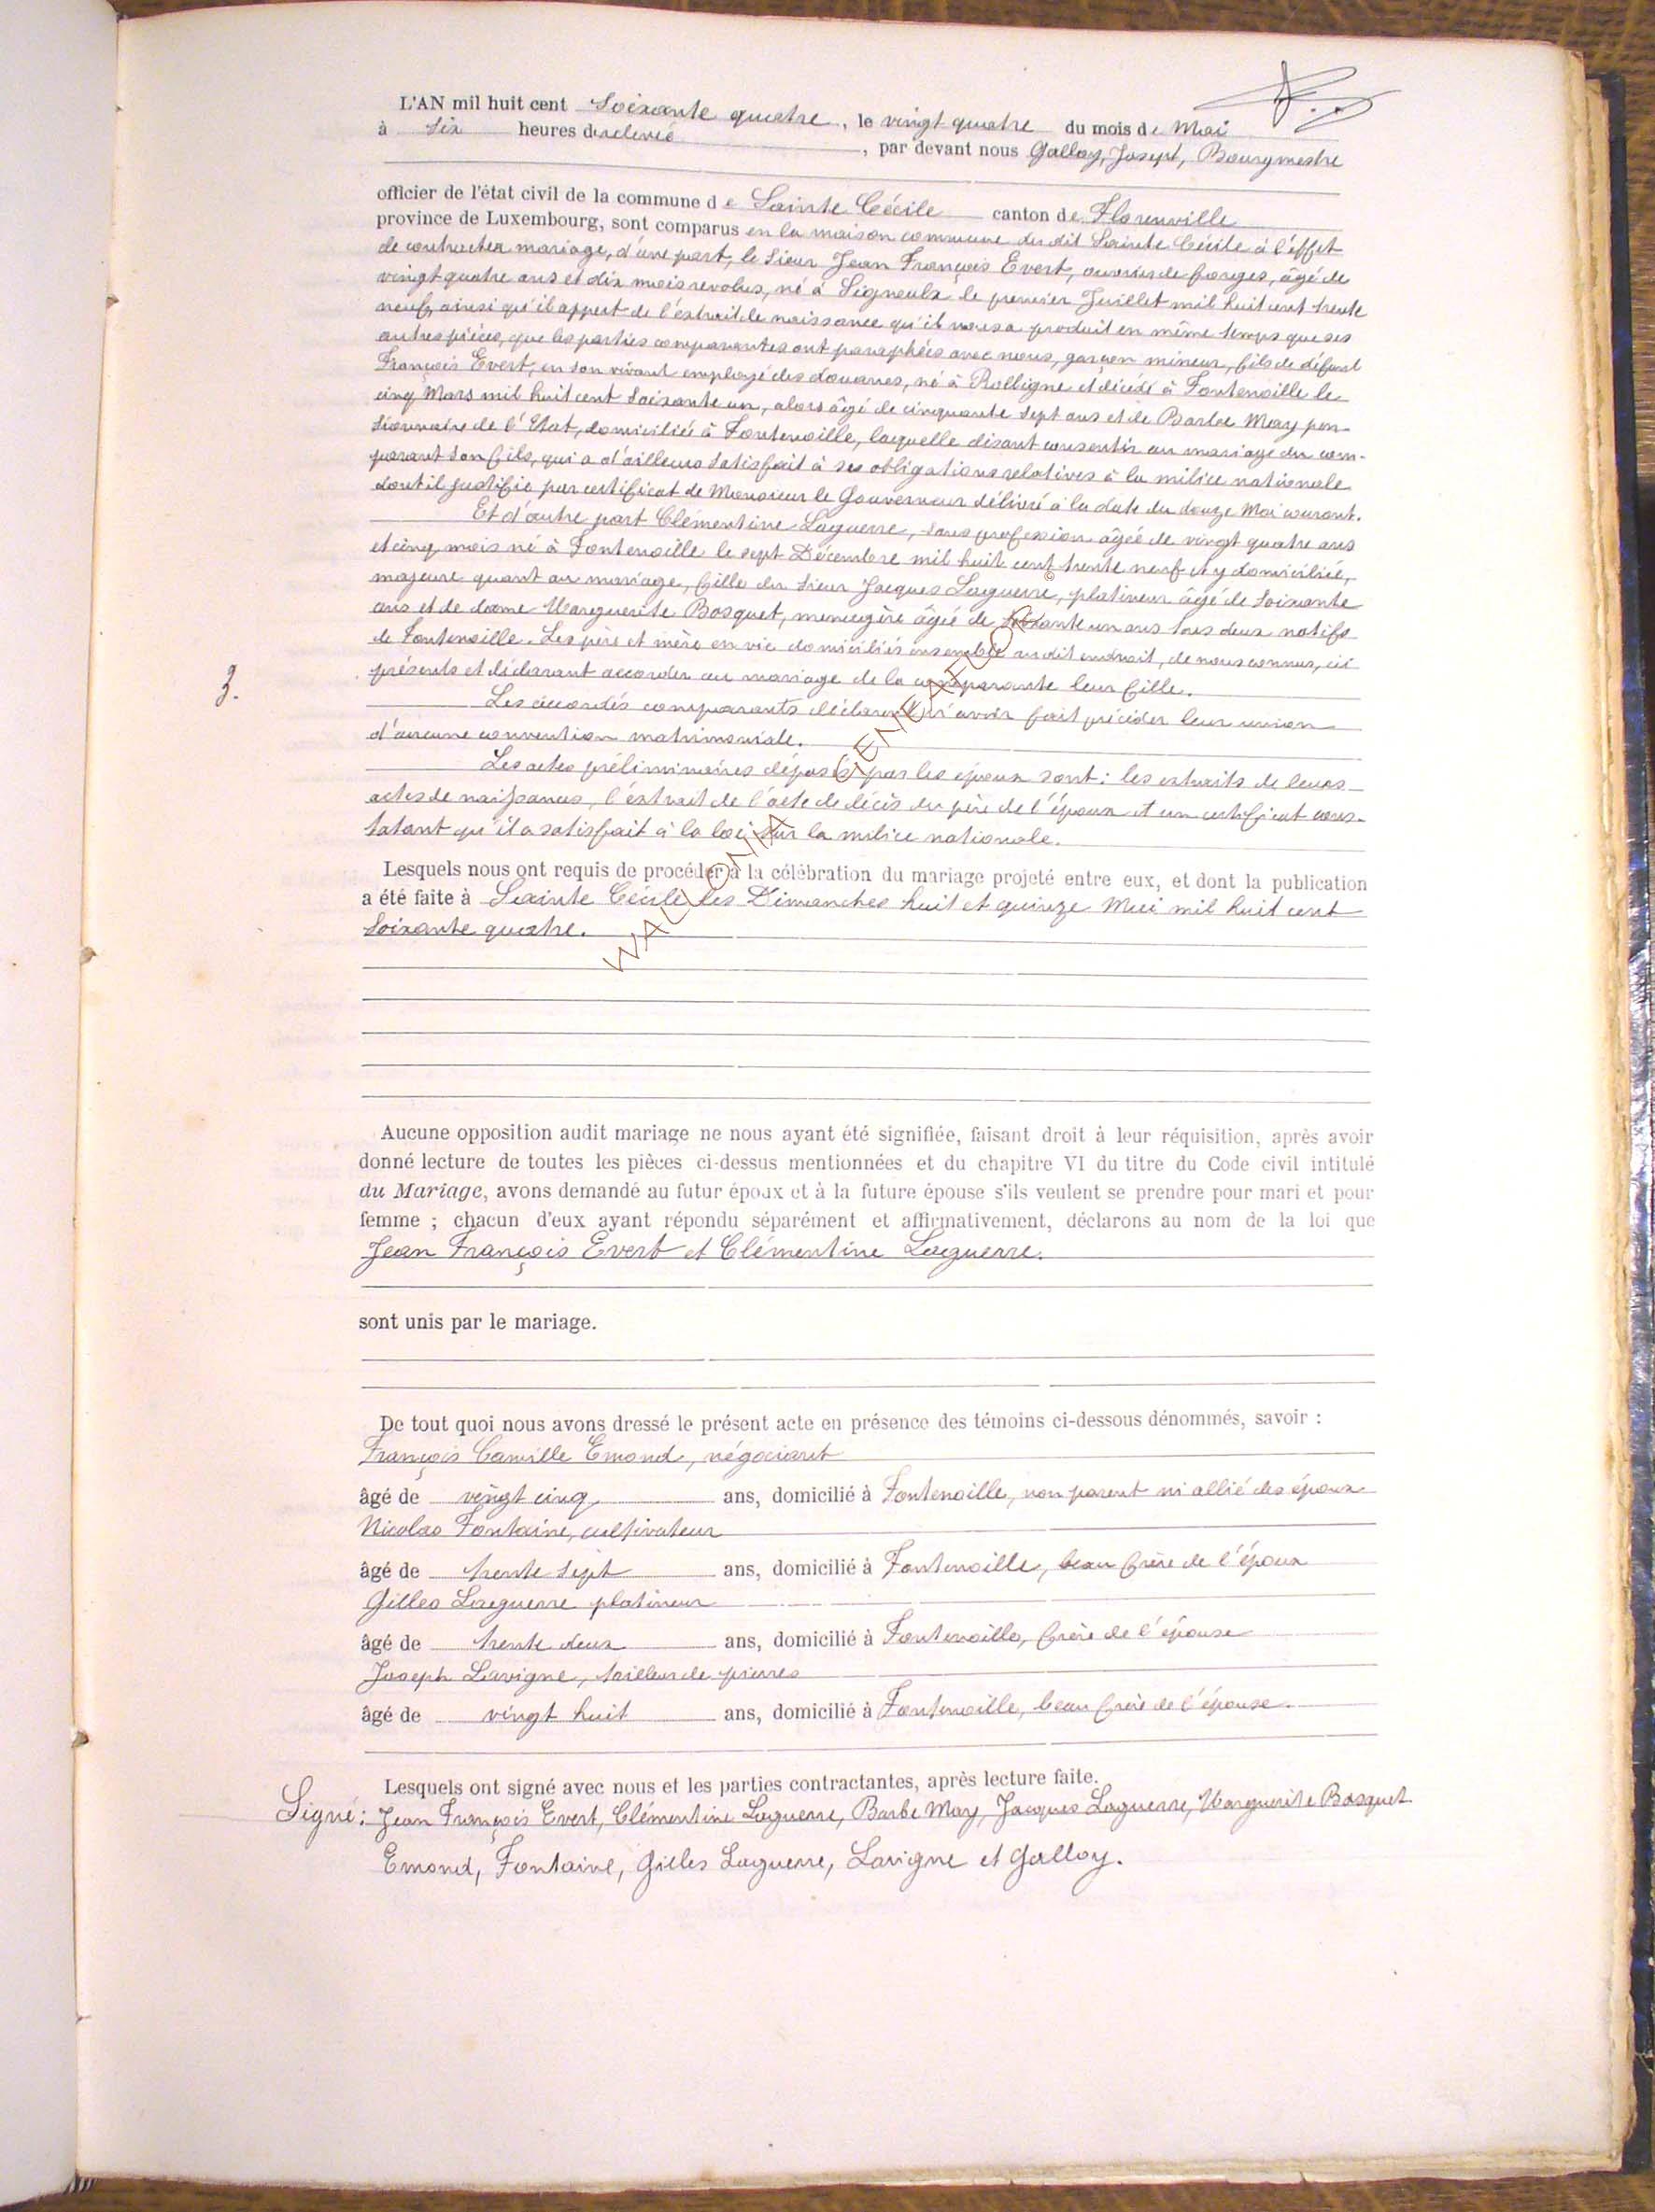 L'AN mil huit cent Soixante quatre, le vingt quatre du mois de Mai
à Six heures de relevée, par devant nous Galloy, Joseph, Bourgmestre
officier de l'état civil de la commune de Sainte Cécile canton de Florenville
province de Luxembourg, sont comparus en la maison commune du dit Sainte Cécile à l'effet
de contracter mariage, d'une part, le Sieur Jean François Evert, ouvrier de forges, âgé de
vingt quatre ans et dix mois revolus, né à Signeulx le premier Juillet mil huit cent trente
neuf, ainsi qu'il appert de l'éxtrait de naissance qu'il nous a produit en même temps que ses
autres pièces, que les parties comparantes ont paraphées avec nous, garçon mineur, fils de défunt
François Evert, en son vivant employé des douanes, né à Rolligne et décédé à Fontenoille le
cinq Mars mil huit cent Soixante un, alors âgé de cinquante sept ans et de Barbe May pen-
sionnaire de l'Etat, domiciliée à Fontenoille, laquelle disant consentir au mariage du com-
parant son fils, qui a d'ailleurs satisfait à ses obligations relatives à la milice nationale
dont il justifie par certificat de Monsieur le Gouverneur délivré à la date du douze Mai courant.
Et d'autre part Clémentine Laguerre, sans profession âgée de vingt quatre ans
et cinq mois né à Fontenoille le sept Décembre mil huit cent trente neuf et y domiciliée,
majeure quant au mariage, fille du Sieur Jacques Laguerre, platineur âgé de Soixante
ans et de dame Marguerite Bosquet, menagère âgée de soixante un ans tous deux natifs
de Fontenoille. Les père et mère en vie domiciliés ensemble au dit endroit, de nous connus, ici
présents et déclarant accorder au mariage de la comparante leur fille.
3.
Les accordés comparants déclarent n'avoir fait précéder leur union
d'aucune convention matrimoniale.
Les actes préliminaires déposés par les époux sont: les extraits de leurs
actes de naissances, l'extrait de l'acte de décès du père de l'époux et un certificat cons-
tatant qu'il a satisfait à la loi sur la milice nationale.
Lesquels nous ont requis de procéder à la célébration du mariage projeté entre eux, et dont la publication
a été faite à Sainte Cécile les Dimanches huit et quinze Mai mil huit cent
Soixante quatre.
WALLONIA GENEAFLOR ©
Aucune opposition audit mariage ne nous ayant été signifiée, faisant droit à leur réquisition, après avoir
donné lecture de toutes les pièces ci-dessus mentionnées et du chapitre VI du titre du Code civil intitulé
du Mariage, avons demandé au futur époux et à la future épouse s'ils veulent se prendre pour mari et pour
femme ; chacun d'eux ayant répondu séparément et affirmativement, déclarons au nom de la loi que
Jean François Evert et Clémentine Laguerre.
sont unis par le mariage.
De tout quoi nous avons dressé le présent acte en présence des témoins ci-dessous dénommés, savoir :
François Camille Emond, négociant
âgé de vingt cinq ans, domicilié à Fontenoille, non parent ni allié des époux
Nicolas Fontaine, cultivateur
âgé de trente sept ans, domicilié à Fontenoille, beau frère de l'époux
Gilles Laguerre platineur
âgé de trente deux ans, domicilié à Fontenoille, frère de l'épouse
Joseph Lavigne, tailleur de pierres
âgé de vingt huit ans, domicilié à Fontenoille, beau frère de l'épouse.
Lesquels ont signé avec nous et les parties contractantes, après lecture faite.
Signé: Jean François Evert, Clémentine Laguerre, Barbe May, Jacques Laguerre, Marguerite Bosquet
Emond, Fontaine, Gilles Laguerre, Lavigne et Galloy.